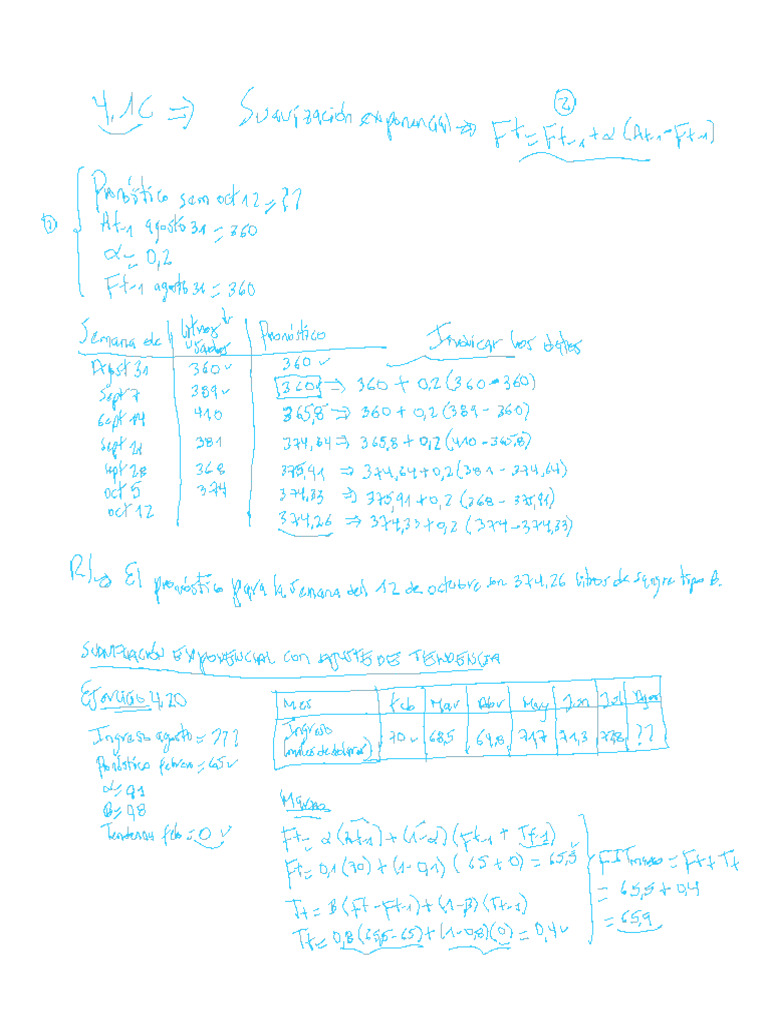 ②
4,1C ⇒ Suavización exponencial ⇒ Ft = Ft-1 + α (At-1 - Ft-1)
Pronóstico sem oct 12 = ??
① At-1 agosto 31 = 360
α = 0,2
Ft-1 agosto 31 = 360
Semana de | litros usados | Pronóstico | Indicar los datos
Agst 31 | 360 | 360
Sept 7 | 389 | 360 ⇒ 360 + 0,2 (360 - 360)
Sept 14 | 410 | 365,8 ⇒ 360 + 0,2 (389 - 360)
Sept 21 | 381 | 374,64 ⇒ 365,8 + 0,2 (410 - 365,8)
Sept 28 | 368 | 375,91 ⇒ 374,64 + 0,2 (381 - 374,64)
oct 5 | 374 | 374,33 ⇒ 375,91 + 0,2 (368 - 375,91)
oct 12 | 374,26 ⇒ 374,33 + 0,2 (374 - 374,33)
R) ⇒ El pronóstico para la semana del 12 de octubre son 374,26 litros de sangre tipo
SUAVIZACIÓN EXPONENCIAL CON AJUSTE DE TENDENCIA
Ejercicio 4,20
Mes | Feb | Mar | Abr | May | Jun | Jul | Agos
Ingreso (miles de dolares) | 70 | 68,5 | 64,8 | 71,7 | 71,3 | 72,8 | ??
Ingreso agosto = ???
Pronóstico febrero = 65
α = 0,1
β = 0,8
Tendencia feb = 0
Marzo
Ft = α (At-1) + (1-α) (Ft-1 + Tt-1)
Ft = 0,1 (70) + (1-0,1) ( 65 + 0) = 65,5
Tt = β (Ft - Ft-1) + (1-β) (Tt-1)
Tt = 0,8 (65,5 - 65) + (1-0,8) (0) = 0,4
FITmarzo = Ft + Tt
= 65,5 + 0,4
= 65,9